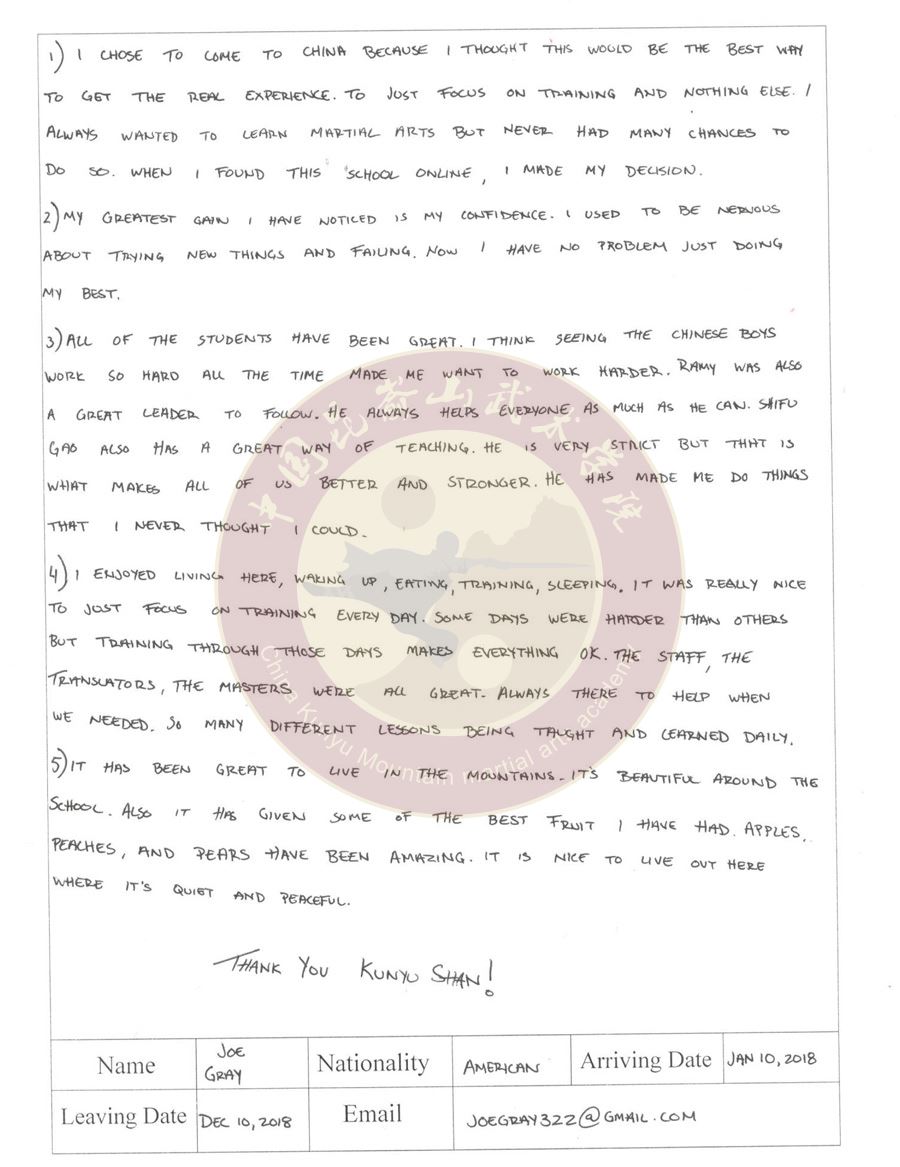 1) I CHOSE TO COME TO CHINA BECAUSE I THOUGHT THIS WOULD BE THE BEST WAY
TO GET THE REAL EXPERIENCE. TO JUST FOCUS ON TRAINING AND NOTHING ELSE. I
ALWAYS WANTED TO LEARN MARTIAL ARTS BUT NEVER HAD MANY CHANCES TO
DO SO. WHEN I FOUND THIS SCHOOL ONLINE, I MADE MY DECISION.
2) MY GREATEST GAIN I HAVE NOTICED IS MY CONFIDENCE. I USED TO BE NERVOUS
ABOUT TRYING NEW THINGS AND FAILING. NOW I HAVE NO PROBLEM JUST DOING
MY BEST.
3) ALL OF THE STUDENTS HAVE BEEN GREAT. I THINK SEEING THE CHINESE BOYS
WORK SO HARD ALL THE TIME MADE ME WANT TO WORK HARDER. RAMY WAS ALSO
A GREAT LEADER TO FOLLOW. HE ALWAYS HELPS EVERYONE AS MUCH AS HE CAN. SHIFU
GAO ALSO HAS A GREAT WAY OF TEACHING. HE IS VERY STRICT BUT THAT IS
WHAT MAKES ALL OF US BETTER AND STRONGER. HE HAS MADE ME DO THINGS
THAT I NEVER THOUGHT I COULD.
4) I ENJOYED LIVING HERE, WAKING UP, EATING, TRAINING, SLEEPING. IT WAS REALLY NICE
TO JUST FOCUS ON TRAINING EVERY DAY. SOME DAYS WERE HARDER THAN OTHERS
BUT TRAINING THROUGH THOSE DAYS MAKES EVERYTHING OK. THE STAFF, THE
TRANSLATORS, THE MASTERS WERE ALL GREAT. ALWAYS THERE TO HELP WHEN
WE NEEDED. SO MANY DIFFERENT LESSONS BEING TAUGHT AND LEARNED DAILY.
5) IT HAS BEEN GREAT TO LIVE IN THE MOUNTAINS. IT'S BEAUTIFUL AROUND THE
SCHOOL. ALSO IT HAS GIVEN SOME OF THE BEST FRUIT I HAVE HAD. APPLES,
PEACHES, AND PEARS HAVE BEEN AMAZING. IT IS NICE TO LIVE OUT HERE
WHERE IT'S QUIET AND PEACEFUL.
THANK YOU KUNYU SHAN!
中国昆嵛山武术学院
China Kunyu Mountain martial arts academy
Name JOE GRAY Nationality AMERICAN Arriving Date JAN 10, 2018
Leaving Date DEC 10, 2018 Email JOEGRAY322@GMAIL.COM